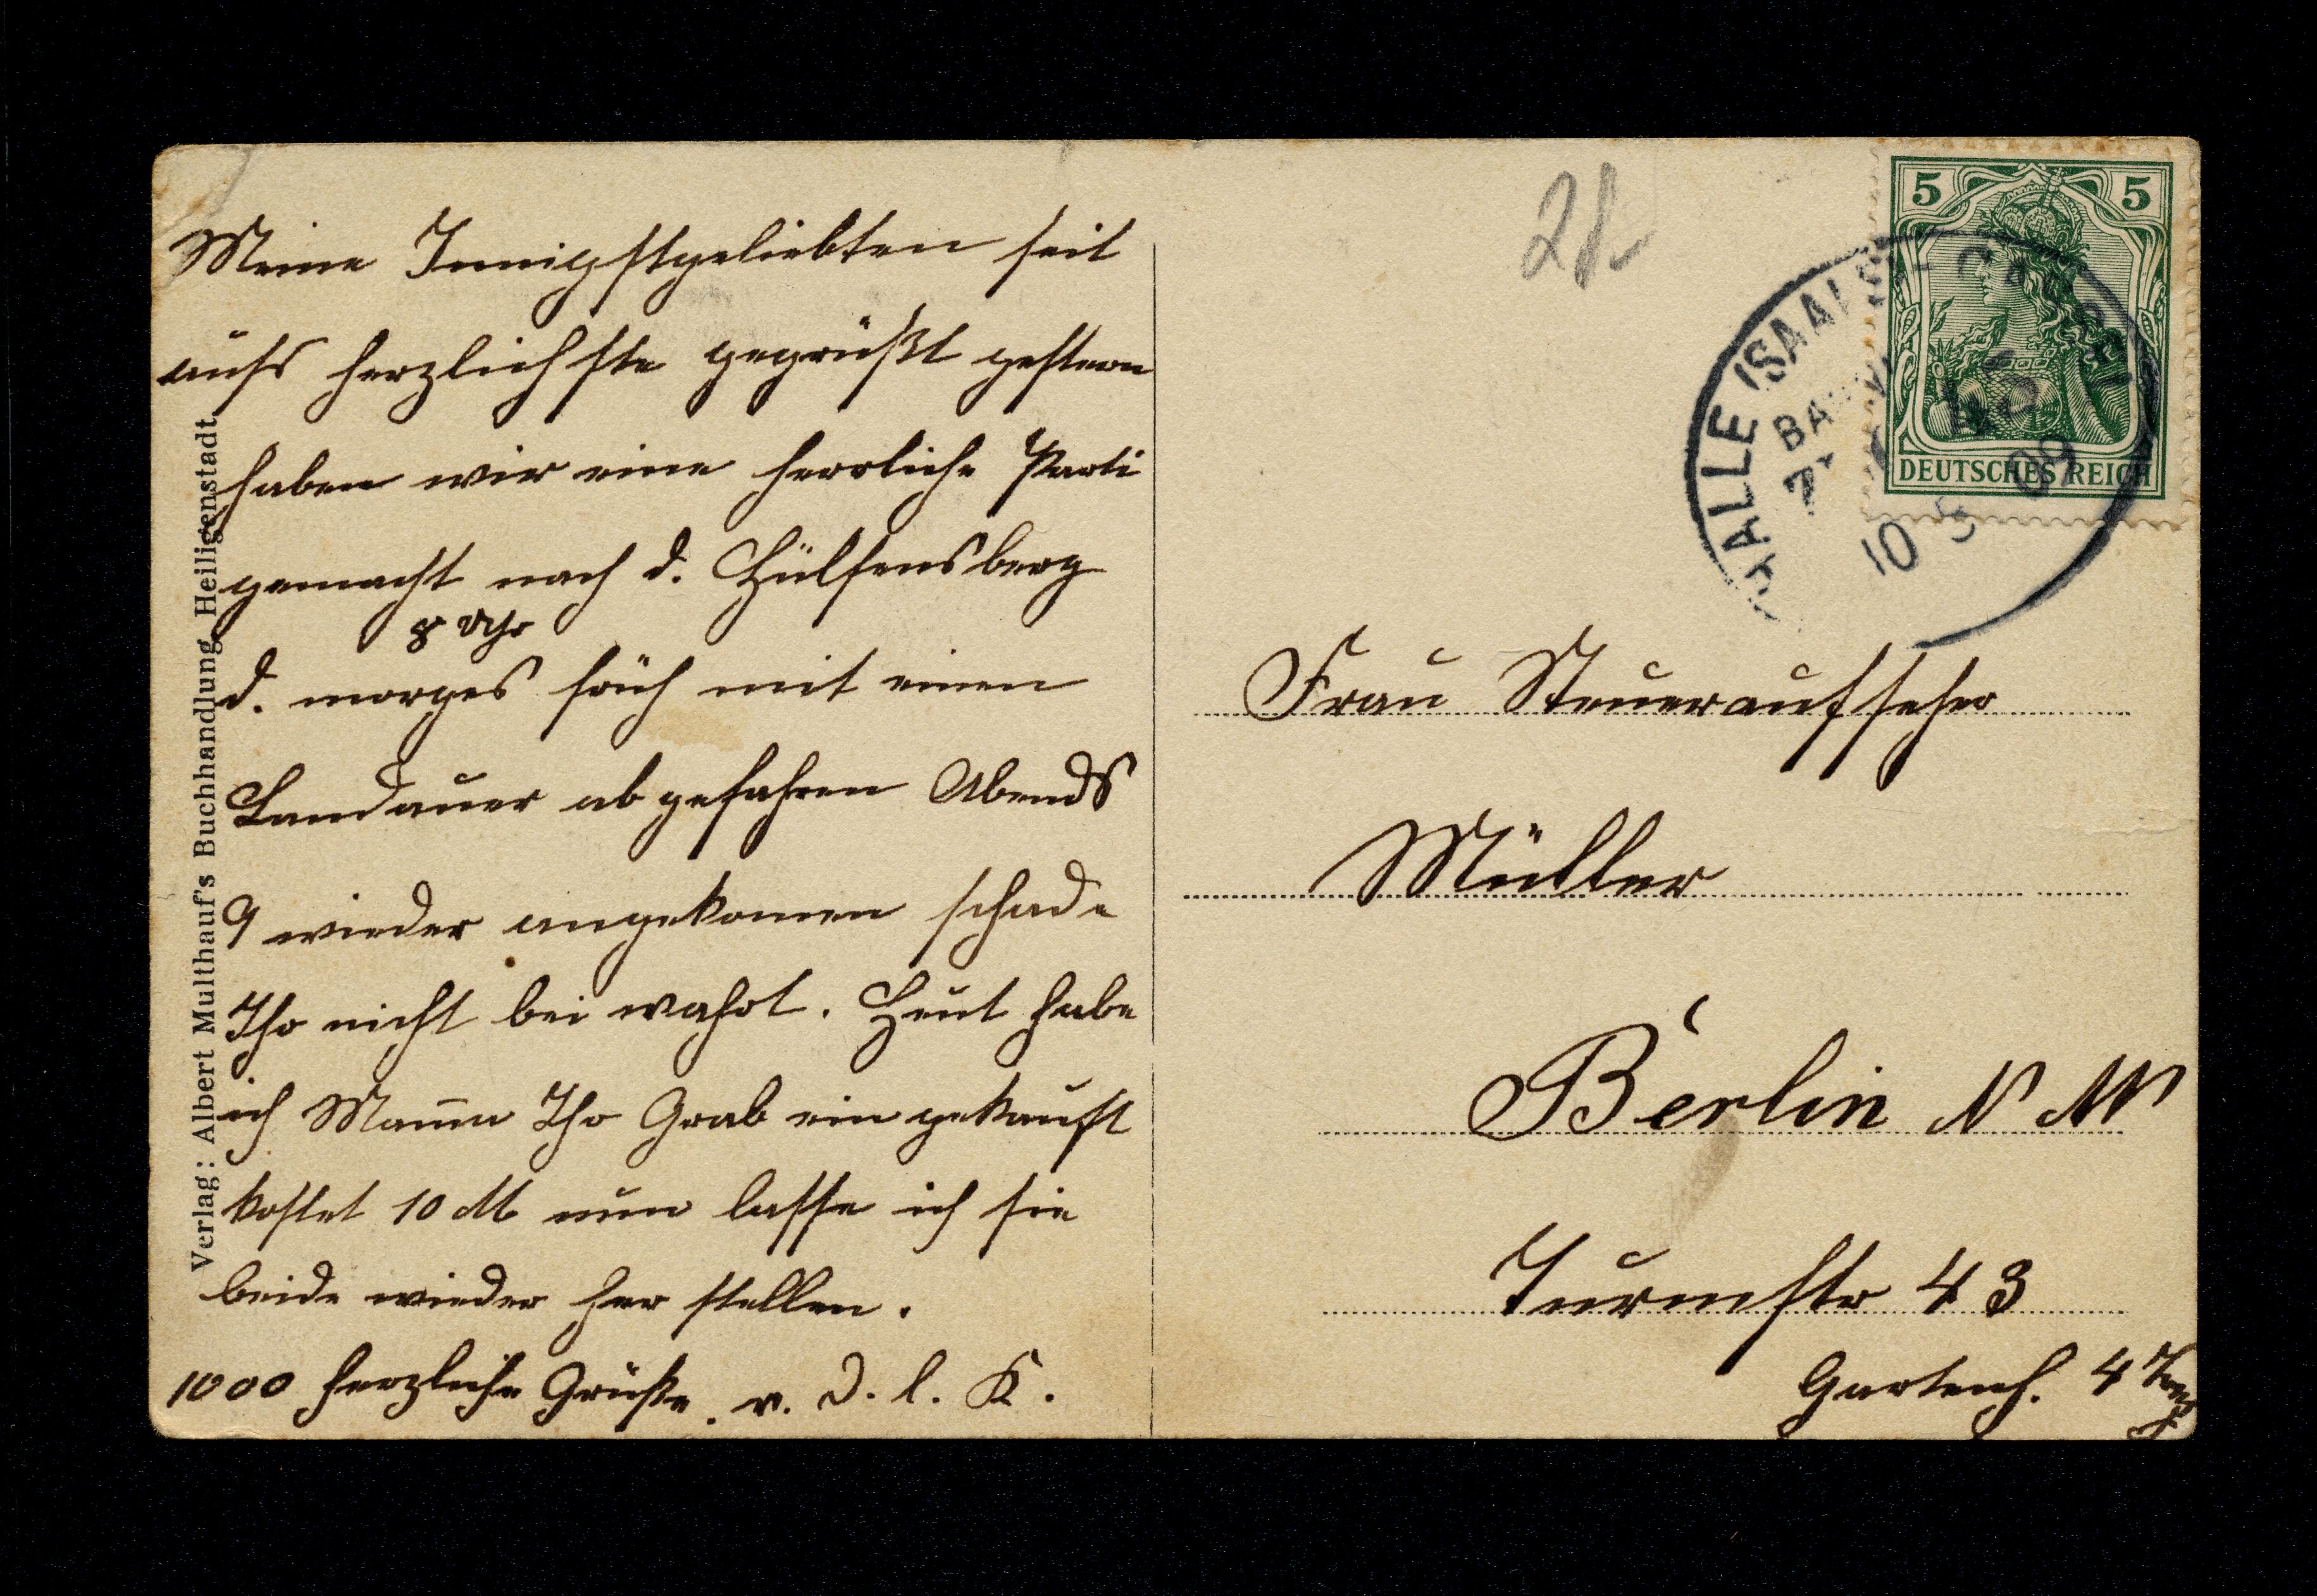 Meine Innigstgeliebten seit
aufs herzlichste gegrüßt gestern
haben wir eine herrliche Parti
gemacht nach d. Hülfensberg
8 Uhr
d. morges früh mit einen
Landauer ab gefahren Abends
9 wieder angekomen schade
Ihr nicht bei wahrt. Heut habe
ich Mamen Ihr Grab ein gekauft
kostet 10 M nun lasse ich sie
beide wieder her stellen.
1000 herzliche Grüße. v. D. l. K.
Verlag: Albert Multhauf's Buchhandlung, Heiligenstadt.
5 5
DEUTSCHES REICH
HALLE (SAALE)
10 5 09
Frau Steueraufseher
Müller
Berlin N W
Turmstr 43
Gartenh. 4 Trep